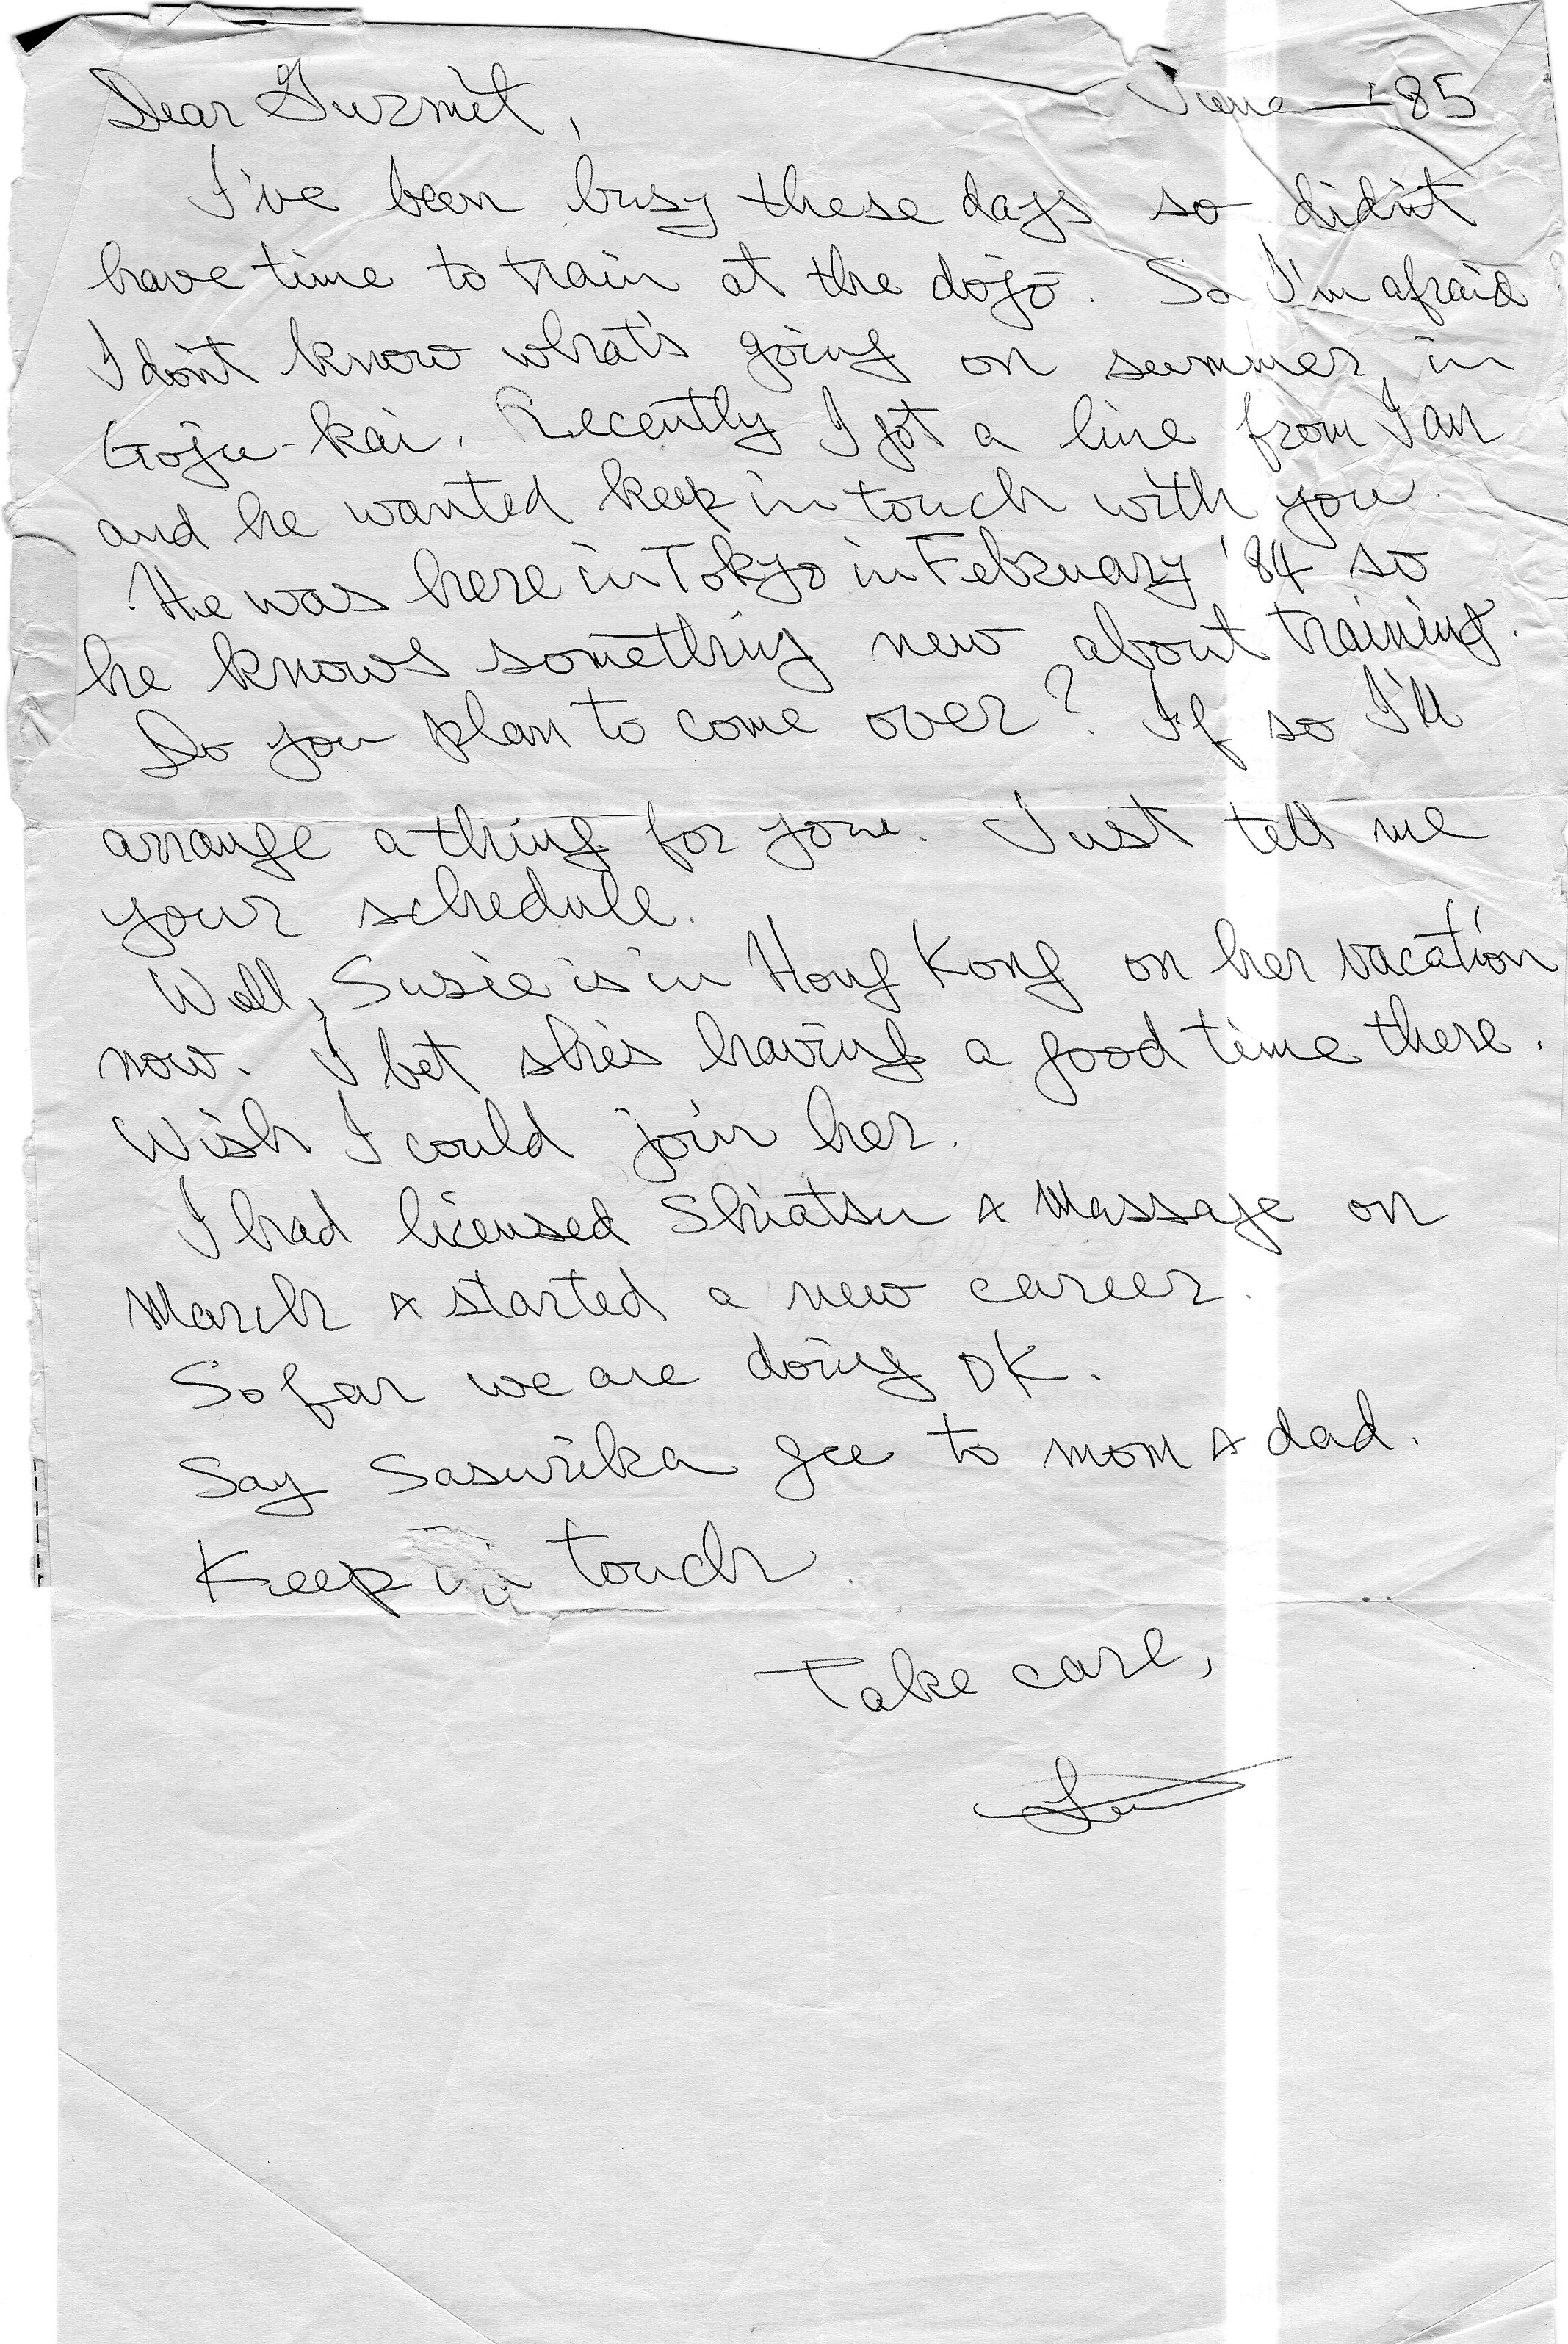 June — '85
Dear Gurmit,
I've been busy these days so didn't
have time to train at the dojo. So I'm afraid
I don't know what's going on summer in
Goju-kai. Recently I got a line from Ian
and he wanted keep in touch with you.
He was here in Tokyo in February '84 so
he knows something new about training.
Do you plan to come over? If so I'll
arrange a thing for you. Just tell me
your schedule.
Well, Susie is in Hong Kong on her vacation
now. I bet she's having a good time there.
Wish I could join her.
I had licensed Shiatsu & Massage on
March & started a new career.
So far we are doing OK.
Say Sasurika gee to mom & dad.
Keep in touch.
Take care,